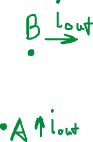 i out
B
A i out